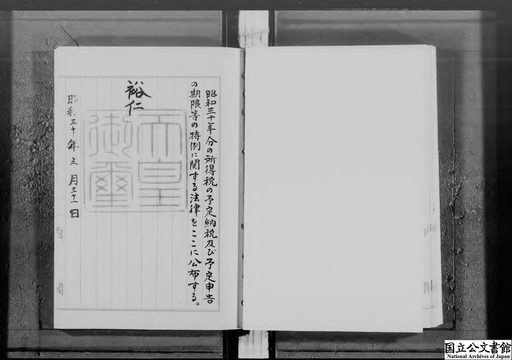 昭和三十年分の所得税の予定納税及び予定申告
の期限等の特例に関する法律をここに公布する。
裕仁
天皇
御璽
昭和三十年五月三十一日
国立公文書館
National Archives of Japan